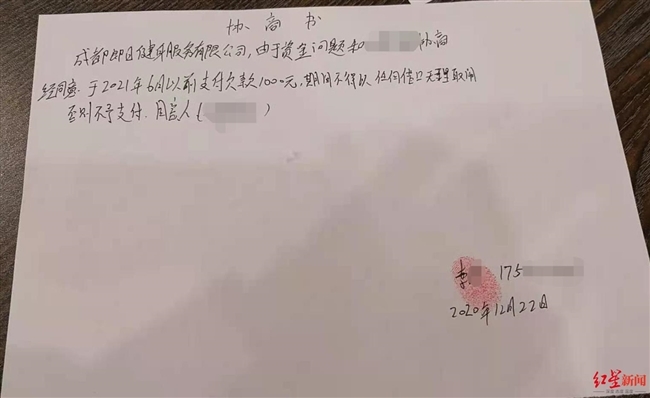 协商书
成都即日健身服务有限公司，由于资金问题和 协商
经同意. 于2021年6月以前支付欠款1000元，期间不得以任何借口无理取闹
否则不予支付. 同意人（ ）
李 175
2020年12月22日
红星新闻